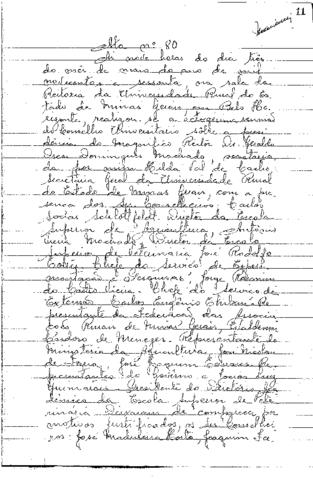 11
Ata nº 80
Às nove horas do dia três
do mês de maio do ano de mil
novecentos e sessenta na sala da
Reitoria da Universidade Rural do Es-
tado de Minas Gerais em Belo Ho-
rizonte, realizou-se a octogésima reunião
do Conselho Universitário sôbre a presi-
dência do Magnífico Reitor Dr. Geraldo
Oscar Domingues Machado, secretaria
da por mim Hilda Val de Castro
Secretária Geral da Universidade Rural
do Estado de Minas Gerais, com a pre-
sença dos Srs. Conselheiros: Carlos
Socias Schlottfeldt, Diretor da Escola
Superior de Agricultura, Antônio
Vieira Machado, Diretor da Escola
Superior de Veterinária José Rodolfo
Chefe do Serviço de Experi-
mentação e Pesquisas, Jorge
do Couto Vieira, Chefe do Serviço de
Extensão Carlos Eugênio Re-
presentante da Federação das Associa-
ções Rurais de Minas Gerais,
Isidoro de Menezes, Representante do
Ministério da Agricultura, José
de Faria, José Joaquim
presentantes do Govêrno e
Guimarães - Presidente do Diretório Aca-
dêmico da Escola Superior de Vete-
rinária. Deixaram de comparecer, por
motivos justificados, os Srs. Conselhei-
ros: José Madureira Horta, Joaquim Fa-